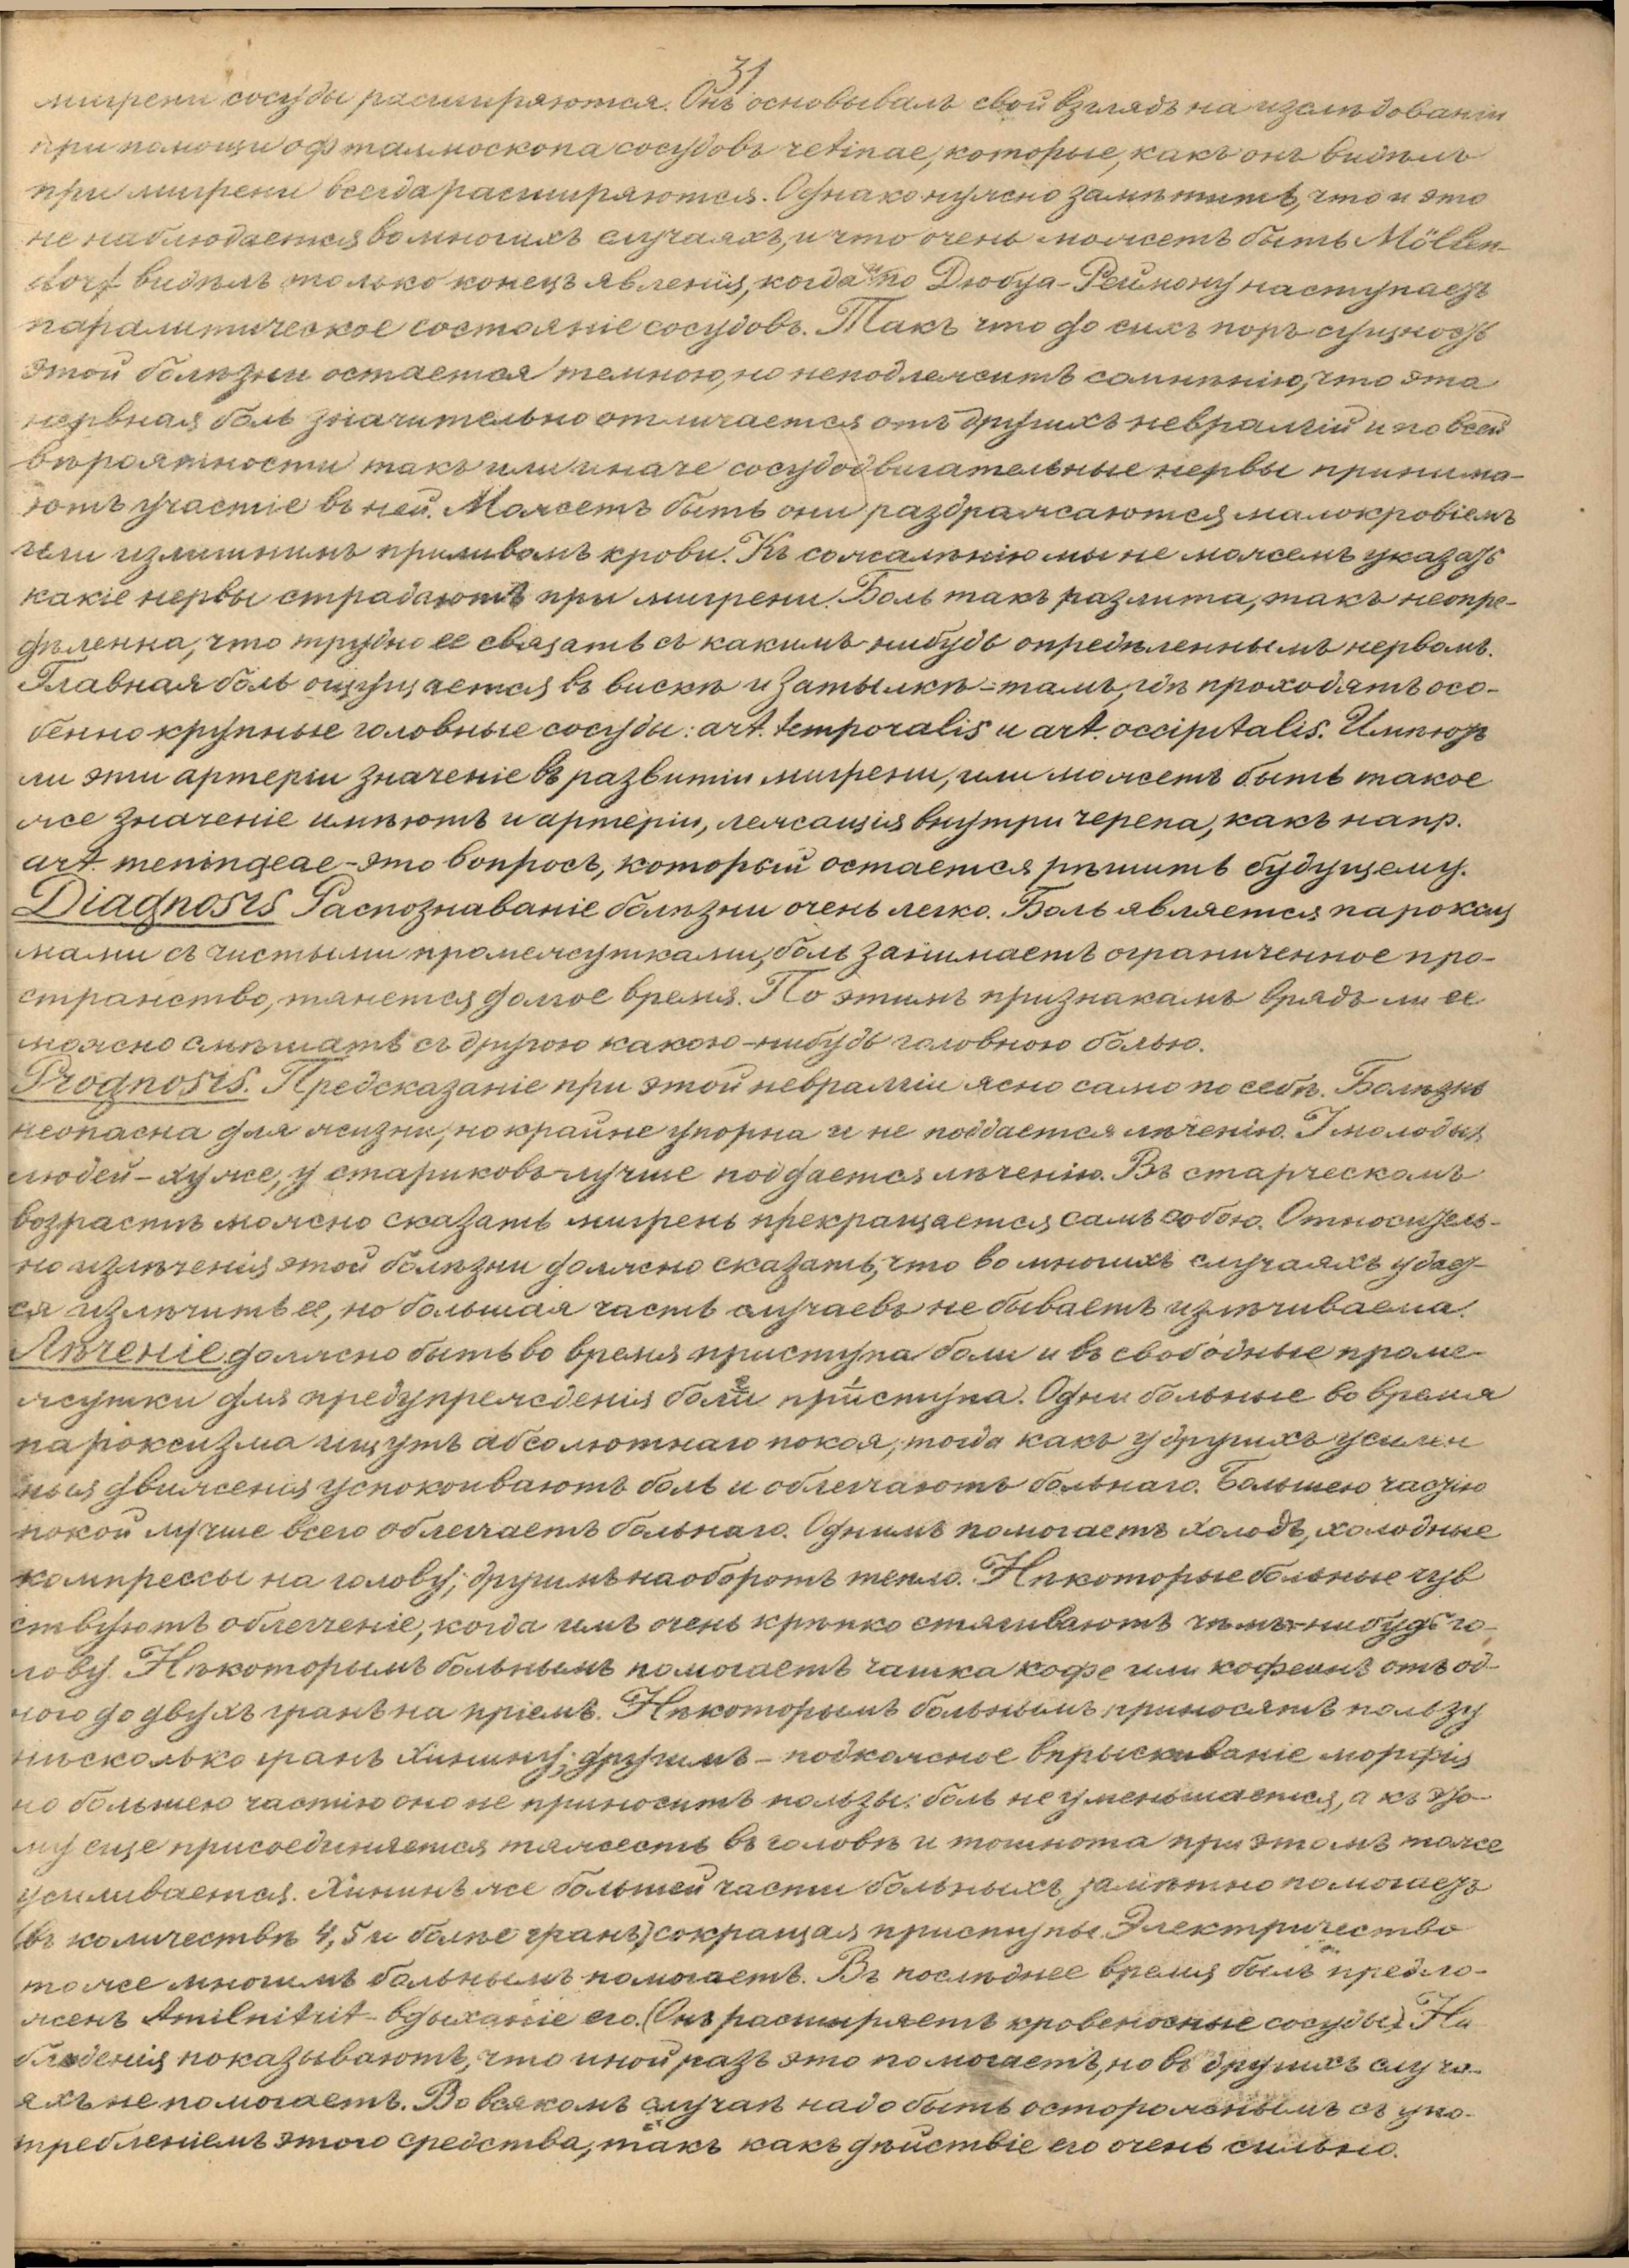 31
мигрени сосуды расширяются. Онъ основывалъ свой взглядъ на изслѣдованіи
при помощи офталмоскопа сосудовъ retinae, которые, какъ онъ видѣлъ
при мигрени всегда расширяются. Однако нужно замѣтить, что и это
не наблюдается во многихъ случаяхъ, и что очень можетъ быть Möllen-
dorf видѣлъ только конецъ явленія, когда и по Дюбуа-Реймону наступаетъ
паралитическое состояніе сосудовъ. Такъ что до сихъ поръ сущность
этой болѣзни остается темною, но неподлежитъ сомнѣнію, что эта
нервная боль значительно отличается отъ другихъ невралгій и по всей
вѣроятности такъ или иначе сосудодвигательные нервы принима-
ютъ участіе въ ней. Можетъ быть они раздражаются малокровіемъ
или излишнимъ приливомъ крови. Къ сожалѣнію мы не можемъ указать
какіе нервы страдаютъ при мигрени. Боль такъ разлита, такъ неопре-
дѣленна, что трудно ее связать съ какимъ-нибудь опредѣленнымъ нервомъ.
Главная боль ощущается въ вискѣ и затылкѣ - тамъ, гдѣ проходятъ осо-
бенно крупные головные сосуды: art. temporalis и art. occipitalis. Имѣютъ
ли эти артеріи значеніе въ развитіи мигрени, или можетъ быть такое
же значеніе имѣютъ и артеріи, лежащія внутри черепа, какъ напр.
art. meningeae - это вопросъ, который остается рѣшить будущему.
Diagnosis Распознаваніе болѣзни очень легко. Боль является пароксиз
мами съ чистыми промежутками, боль занимаетъ ограниченное про-
странство, тянется долгое время. По этимъ признакамъ врядъ ли ее
можно смѣшать съ другою какою-нибудь головною болью.
Prognosis. Предсказаніе при этой невралгіи ясно само по себѣ. Болѣзнь
неопасна для жизни, но крайне упорна и не поддается лѣченію. У молодыхъ
людей - хуже, у стариковъ лучше поддается лѣченію. Въ старческомъ
возрастѣ можно сказать мигрень прекращается самъ собою. Относитель-
но излѣченія этой болѣзни должно сказать, что во многихъ случаяхъ удает-
ся излѣчить ее, но большая часть случаевъ не бываетъ излѣчиваема.
Лѣченіе должно быть во время приступа боли и въ свободные проме-
жутки для предупрежденія боли приступа. Одни больные во время
пароксизма ищутъ абсолютнаго покоя, тогда какъ у другихъ усилен
ныя движенія успокоиваютъ боль и облегчаютъ больнаго. Большею частію
покой лучше всего облегчаетъ больнаго. Однимъ помогаетъ холодъ, холодные
компрессы на голову; другимъ наоборотъ тепло. Нѣкоторые больные чув
ствуютъ облегченіе, когда имъ очень крѣпко стягиваютъ чѣмъ-нибудь го-
лову. Нѣкоторымъ больнымъ помогаетъ чашка кофе или кофеинъ отъ од-
ного до двухъ гранъ на пріемъ. Нѣкоторымъ больнымъ приносятъ пользу
нѣсколько гранъ хинину; другимъ - подкожное впрыскиваніе морфія
но большею частію оно не приноситъ пользы: боль не уменьшается, а къ это-
му еще присоединяется тяжесть въ головѣ и тошнота при этомъ тоже
усиливается. Хининъ же большей части больныхъ замѣтно помогаетъ
(въ количествѣ 4, 5 и болѣе гранъ) сокращая приступы. Электричество
тоже многимъ больнымъ помогаетъ. Въ послѣднее время былъ предло-
женъ Amilnitrit - вдыханіе его. (Онъ расширяетъ кровеносные сосуды). На
блюденія показываютъ, что иной разъ это помогаетъ, но въ другихъ случа-
яхъ не помогаетъ. Во всякомъ случаѣ надо быть осторожнымъ съ упо-
требленіемъ этого средства, такъ какъ дѣйствіе его очень сильно.